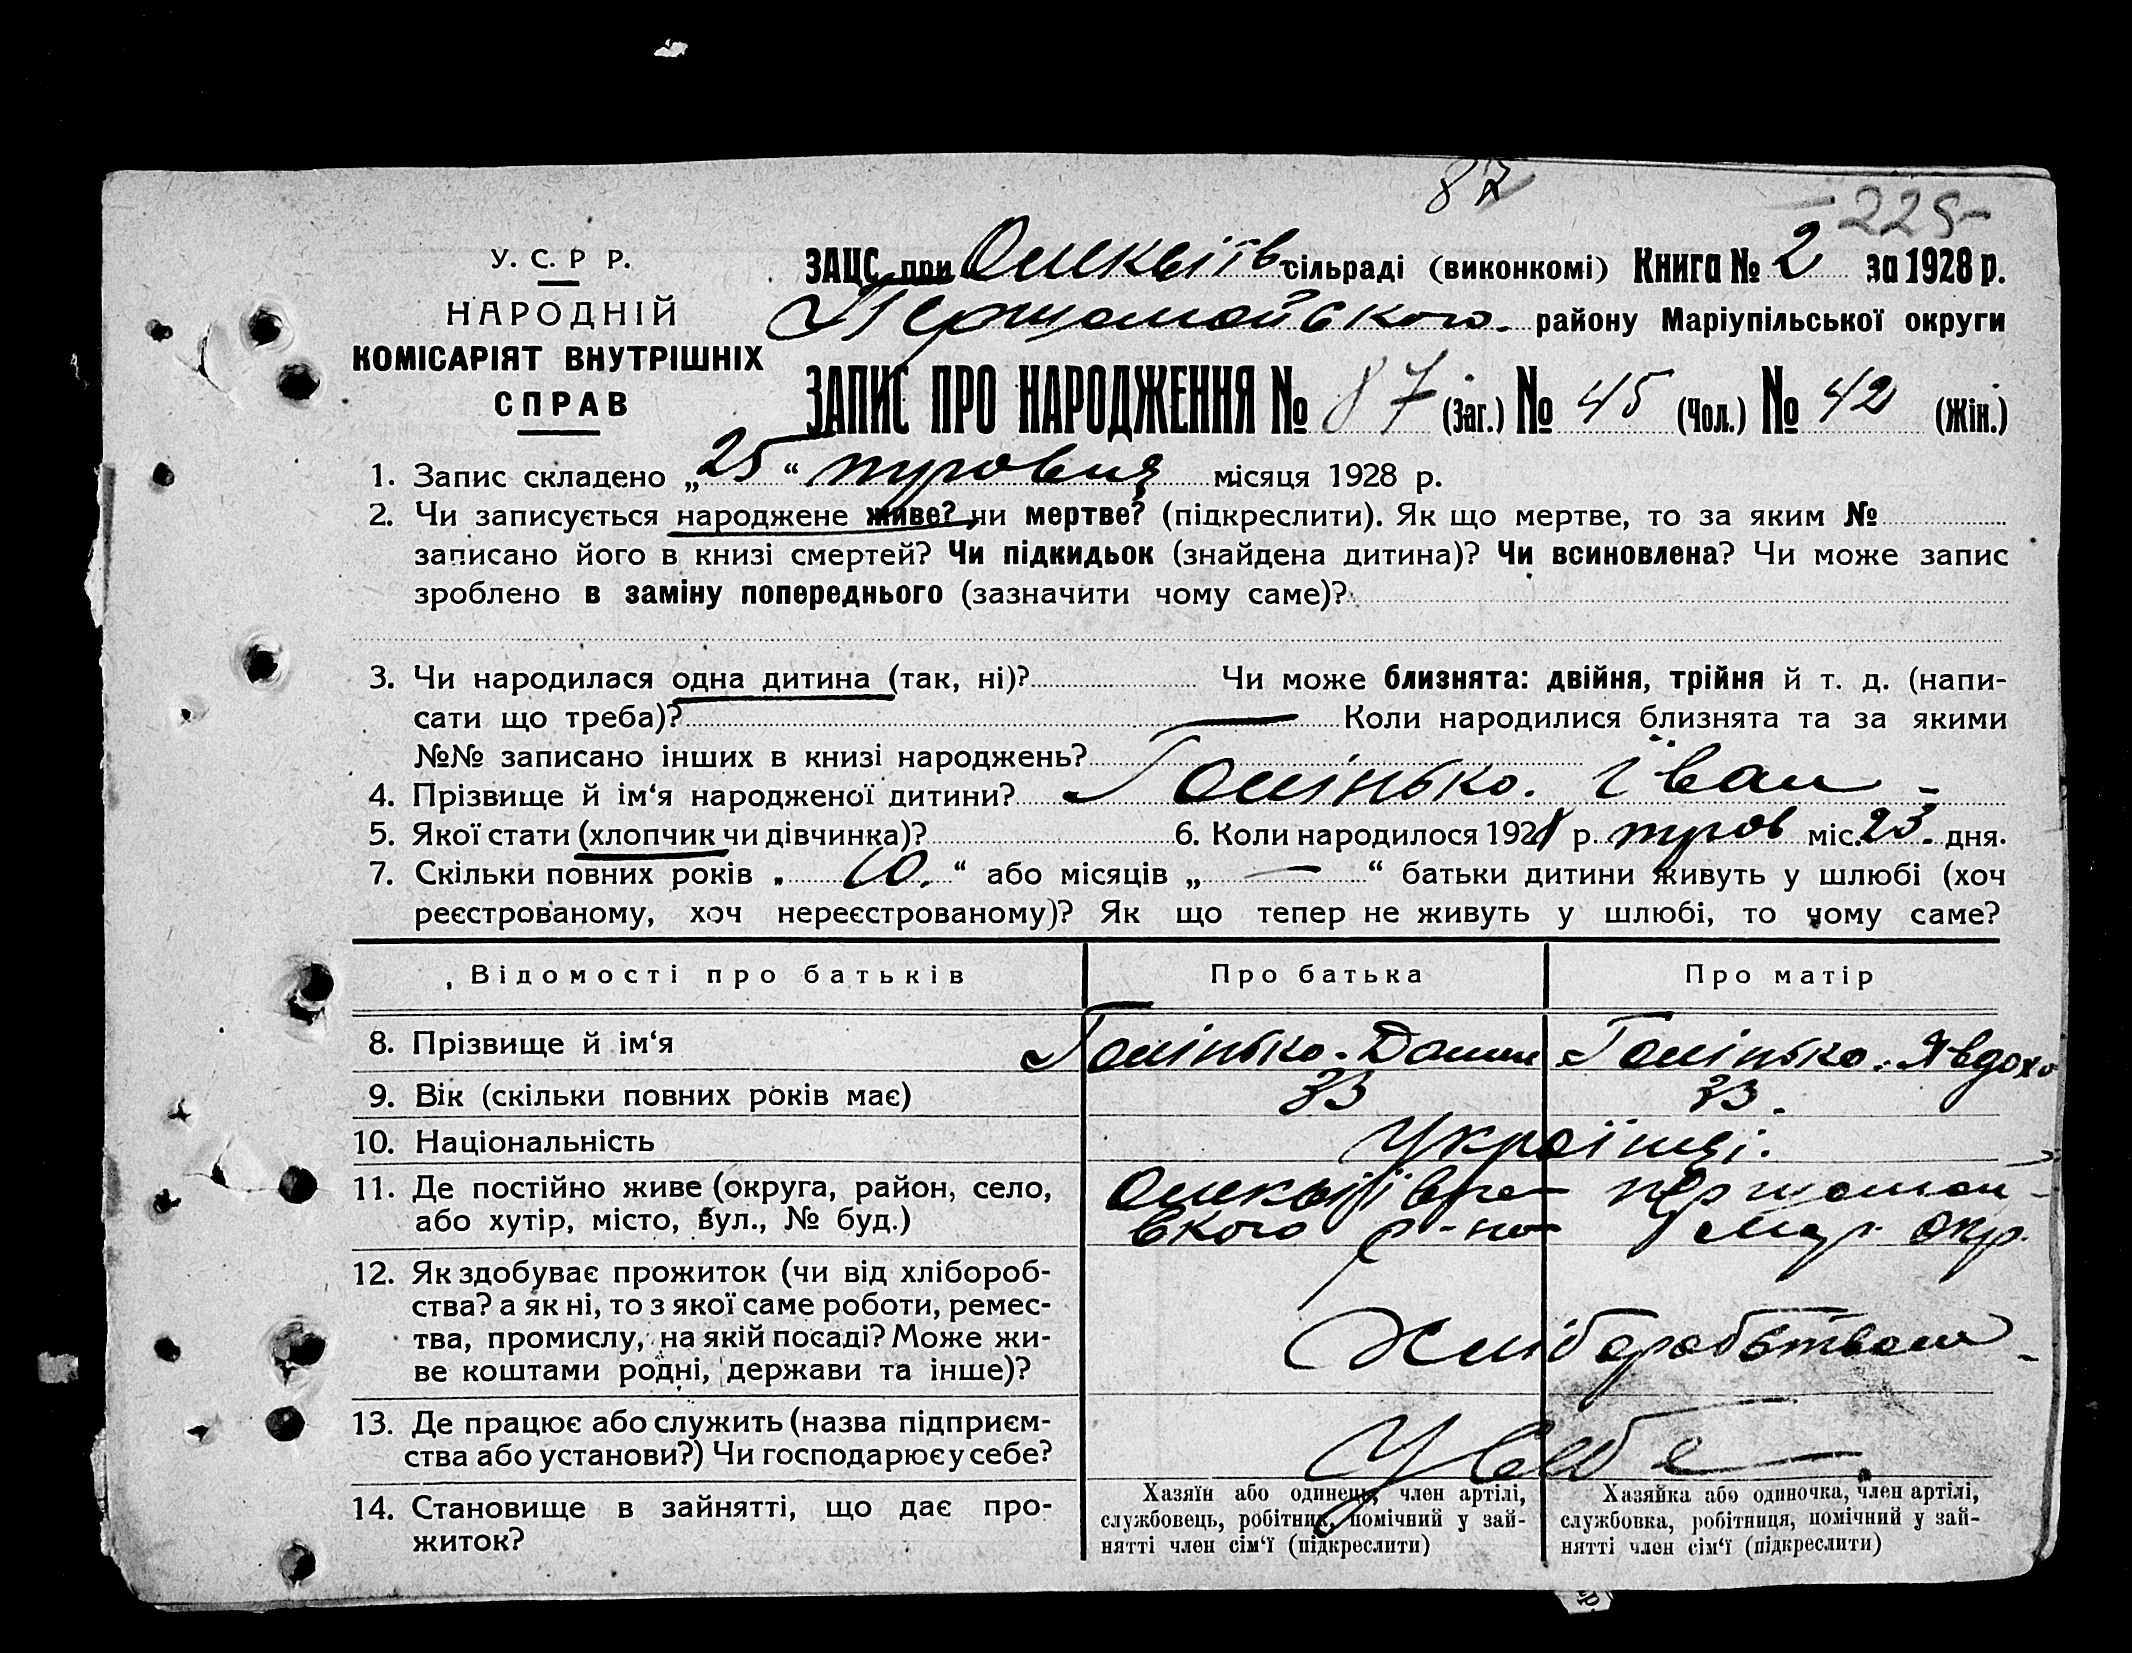 87
225
У. С. Р Р.
НАРОДНІЙ
КОМІСАРІЯТ ВНУТРІШНІХ
СПРАВ
ЗАЦС при сільраді (виконкомі) Книга № 2 за 1928 р.
Першомайського району Маріупільської округи
ЗАПИС ПРО НАРОДЖЕННЯ № 87 (Заг.) № 45 (Чол.) № 42 (Жін.)
1. Запис складено „25“ травня місяця 1928 р.
2. Чи записується народжене живе? чи мертве? (підкреслити). Як що мертве, то за яким №
записано його в книзі смертей? Чи підкидьок (знайдена дитина)? Чи всиновлена? Чи може запис
зроблено в заміну попереднього (зазначити чому саме)?
3. Чи народилася одна дитина (так, ні)? Чи може близнята: двійня, трійня й т. д. (напи-
сати що треба)? — Коли народилися близнята та за якими
№№ записано інших в книзі народжень?
4. Прізвище й ім‘я народженої дитини? Іван
5. Якої стати (хлопчик чи дівчинка)? 6. Коли народилося 1928 р. трав міс. 23 дня.
7. Скільки повних років „10.“ або місяців „—“ батьки дитини живуть у шлюбі (хоч
реєстрованому, хоч нереєстрованому)? Як що тепер не живуть у шлюбі, то чому саме?
Відомості про батьків Про батька Про матір
8. Прізвище й ім‘я Явдоха
9. Вік (скільки повних років має) 33 33.
10. Національність Українці.
11. Де постійно живе (округа, район, село, Першомай-
або хутір, місто, вул., № буд.) ського р-на Мар. окр.
12. Як здобуває прожиток (чи від хлібороб-
ства? а як ні, то з якої саме роботи, ремес-
тва, промислу, на якій посаді? Може жи- Хліборобством
ве коштами родні, держави та інше)?
13. Де працює або служить (назва підприєм-
ства або установи?) Чи господарює у себе? У себе
14. Становище в зайнятті, що дає про-
житок?
Хазяїн або одинець, член артілі,
службовець, робітник, помічний у зай-
нятті член сім‘ї (підкреслити)
Хазяйка або одиночка, член артілі,
службовка, робітниця, помічний у зай-
нятті член сім‘ї (підкреслити)